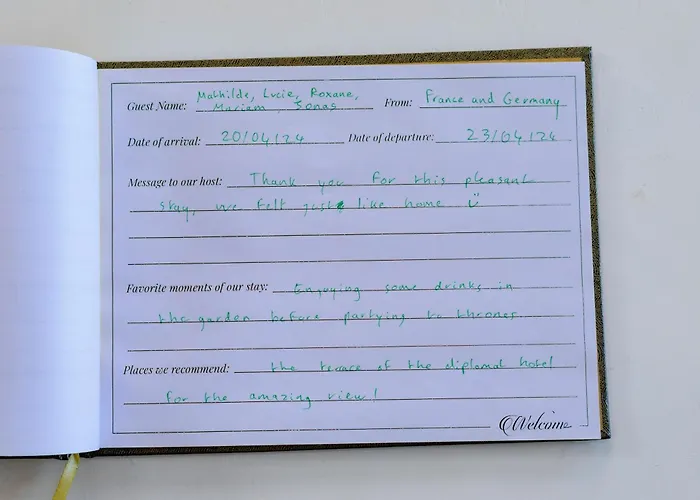 Mathilde, Lucie, Roxane,
Guest Name: Mariam, Jonas From: France and Germany
Date of arrival: 20/04/24 Date of departure: 23/04/24
Message to our host: Thank you for this pleasant
stay, we felt just like home ü
Favorite moments of our stay: Enjoying some drinks in
the garden before partying to thrones
Places we recommend: the terrace of the diplomat hotel
for the amazing view!
Welcome